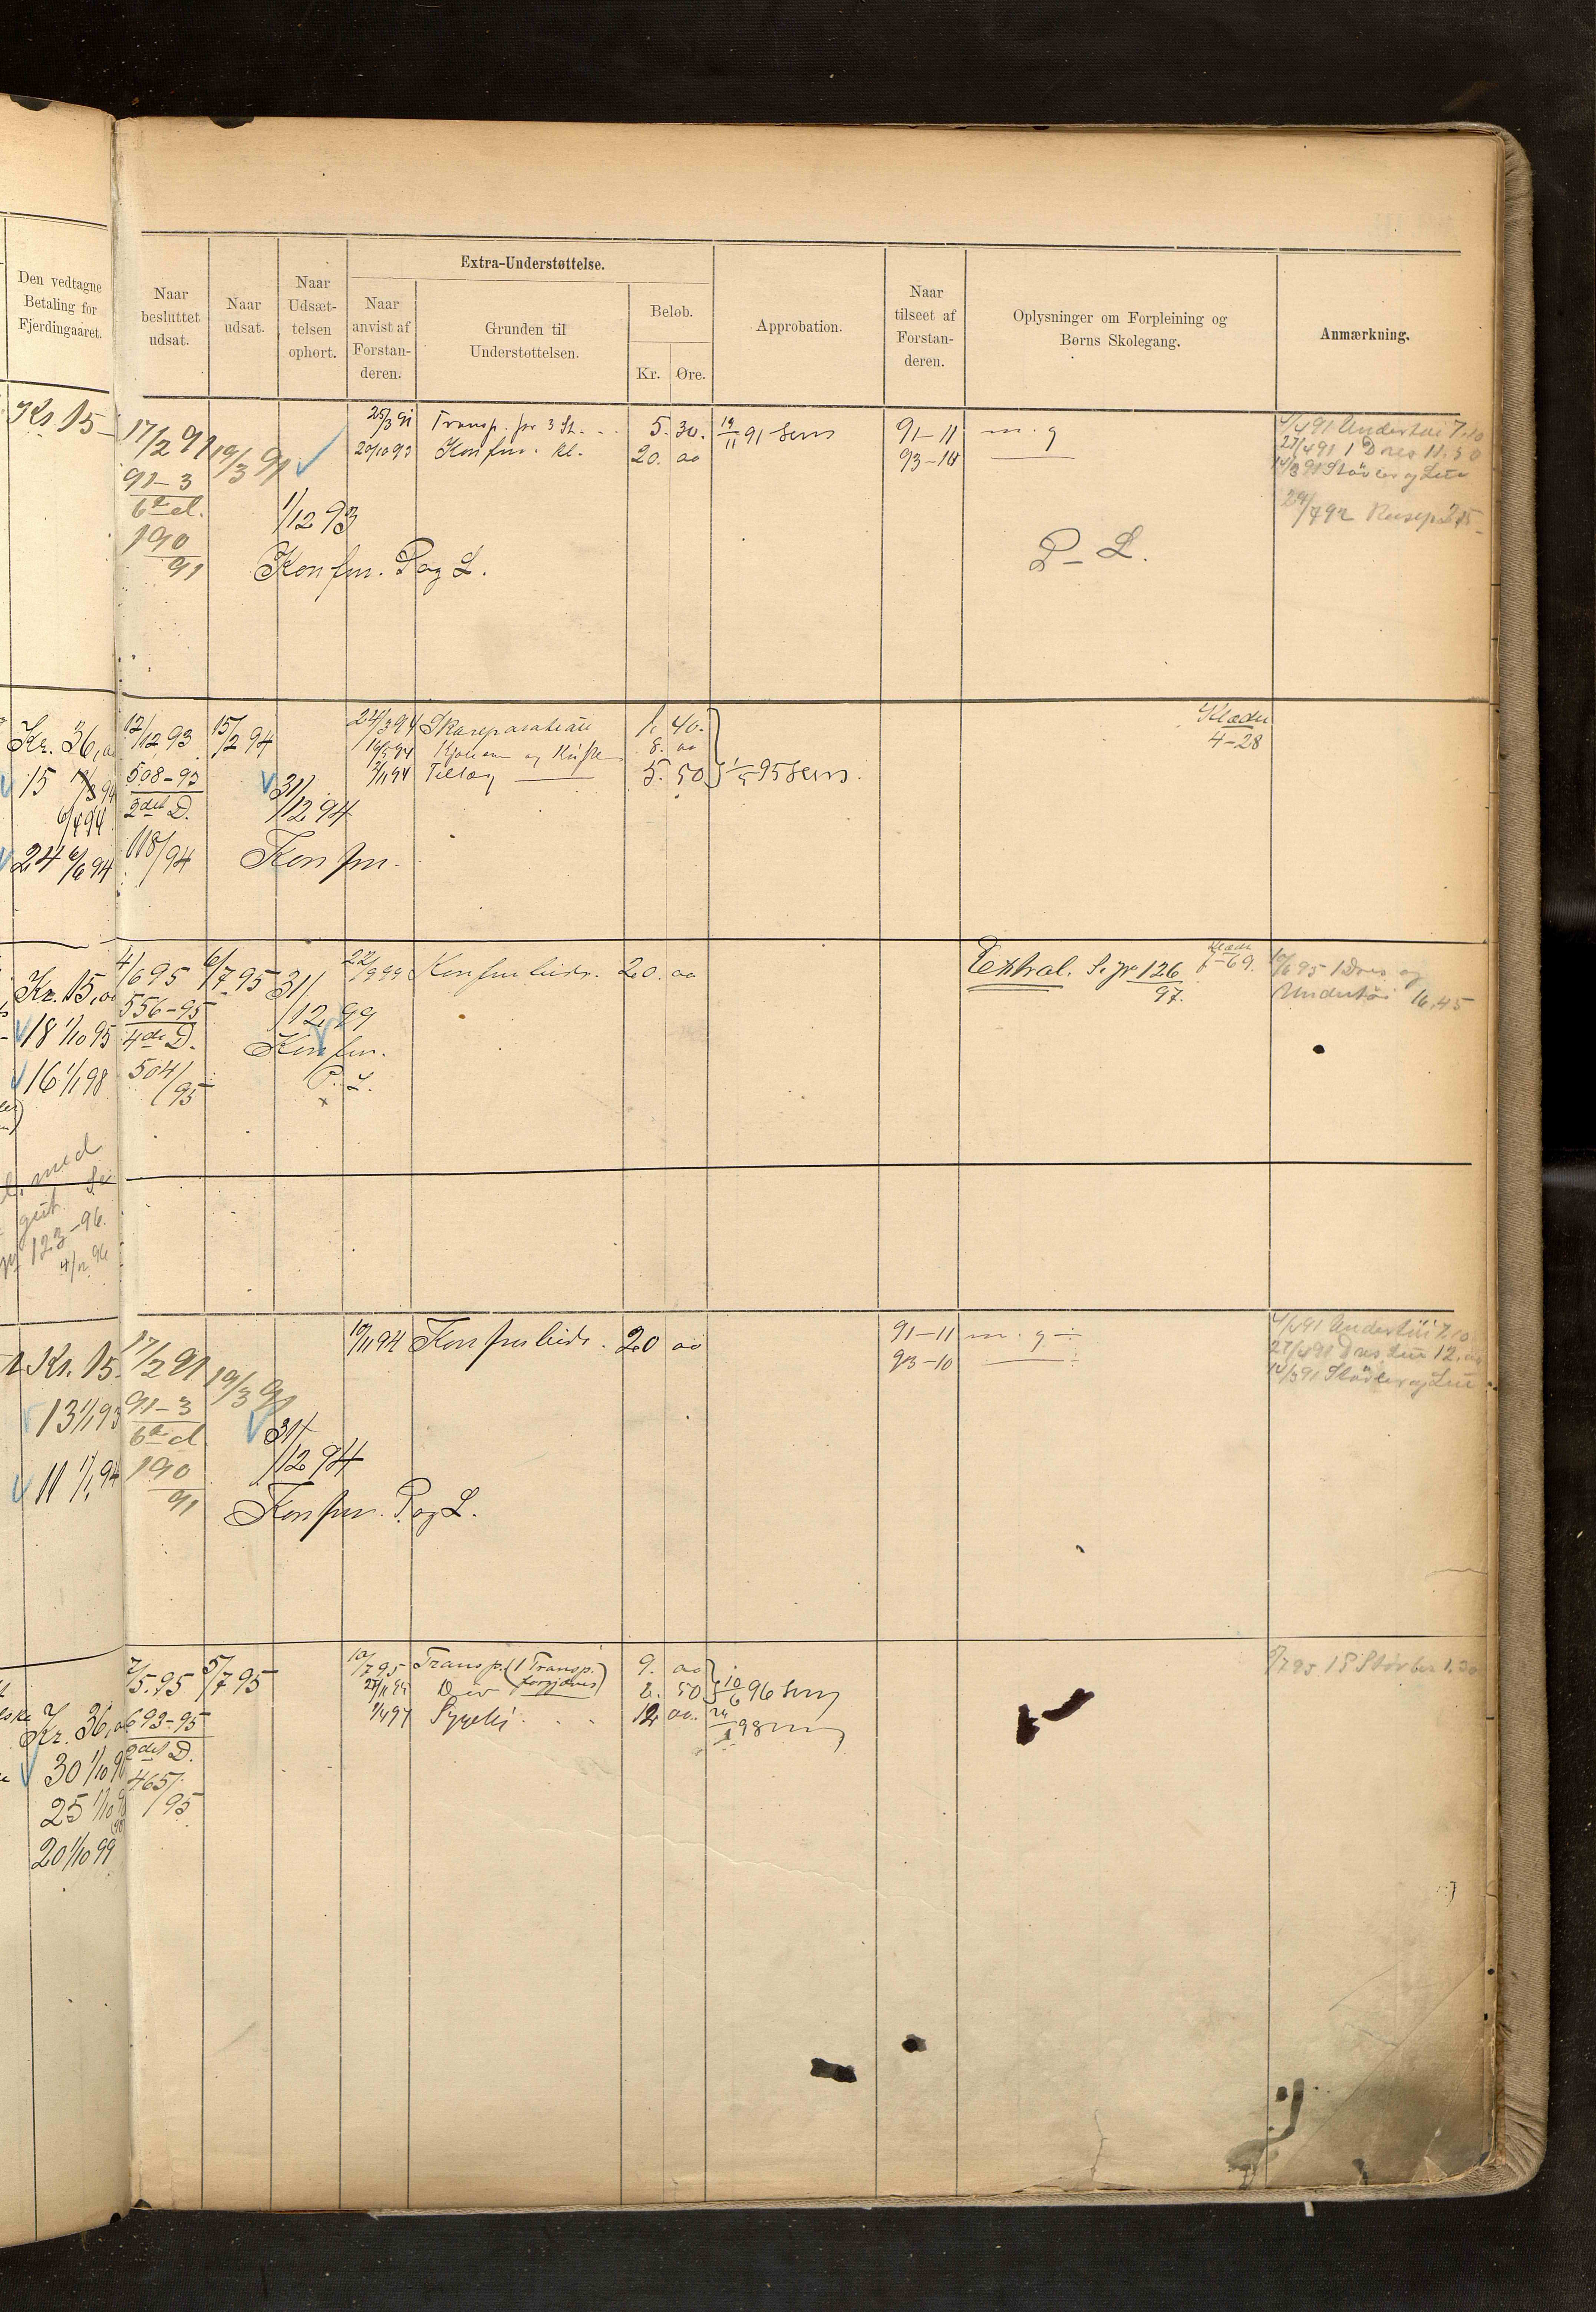 Den vedtagne
Betaling for
Fjerdingaaret.
Naar
besluttet
udsat.
Naar
udsat.
Naar
Udsæt-
telsen
ophørt.
Extra-Understøttelse.
Naar
anvist af
Forstan-
deren.
Grunden til
Understøttelsen.
Beløb.
Kr.
Øre.
Approbation.
Naar
tilseet af
Forstan-
deren.
Oplysninger om Forpleining og
Børns Skolegang.
Anmærkning.
Kr. 15-
17/2 91
91-3
6te d.
190
91
19/3 91
1/12 93
Konfm. P og L.
25/3 91 Transp. for 3 St. 5. 30. 19/11 91 Sem
20/10 93 Konfm. Kl. 20. 00
91-11 m. g
93-10
P-L.
4/4 91 Undertøi 7.10
27/4 91 1 Dres 11.50
14/3 91 Støvler og Lue
29/7 92
Kr. 36,00
15
6/4 94
24 6/6 94
12/12 93
508-93
2det D.
118/94
15/2 94
31/12 94
Konfm.
24/3 94 Skoreparation 1. 40.
Kjole og 8. 00
2/11 94 Tillæg 5. 50 1/5 95 Sem.
Klæder
4-28
Kr. 15,00
18 1/10 95
16 1/1 98
4/6 95
556-95
4de D.
504/95
6/7 95
31/12 99
Konfm.
P. L.
22/9 99 Konfmbidr. 20. 00
Extral. S. 126
97.
Klæder
7-69.
10/6 95 1 Dres og
Undertøi 16,45
med
gut.
123-96.
Kr. 15.
13 1/1 93
11 1/1 94
17/2 91
91-3
6te d
190
91
19/3 91
31/12 94
Konfm. P. og L.
10/11 94 Konfmbidr. 20 00
91-11 m. g
93-10
4/4 91 Undertøi 7.10
27/4 91 Dres, Lue 12.00
14/3 91 Støvler og Lue
Kr. 36,00
30 1/10
25 1/10
20 1/10 99
7/5 95
693-95
2det D.
465/95
5/7 95
10/7 95 Transp. (1 Transp. 9. 00
2. 50 10/6 96 Sem
1/4 97 12 00. 24/1 98
5/7 95 1 P Støvler